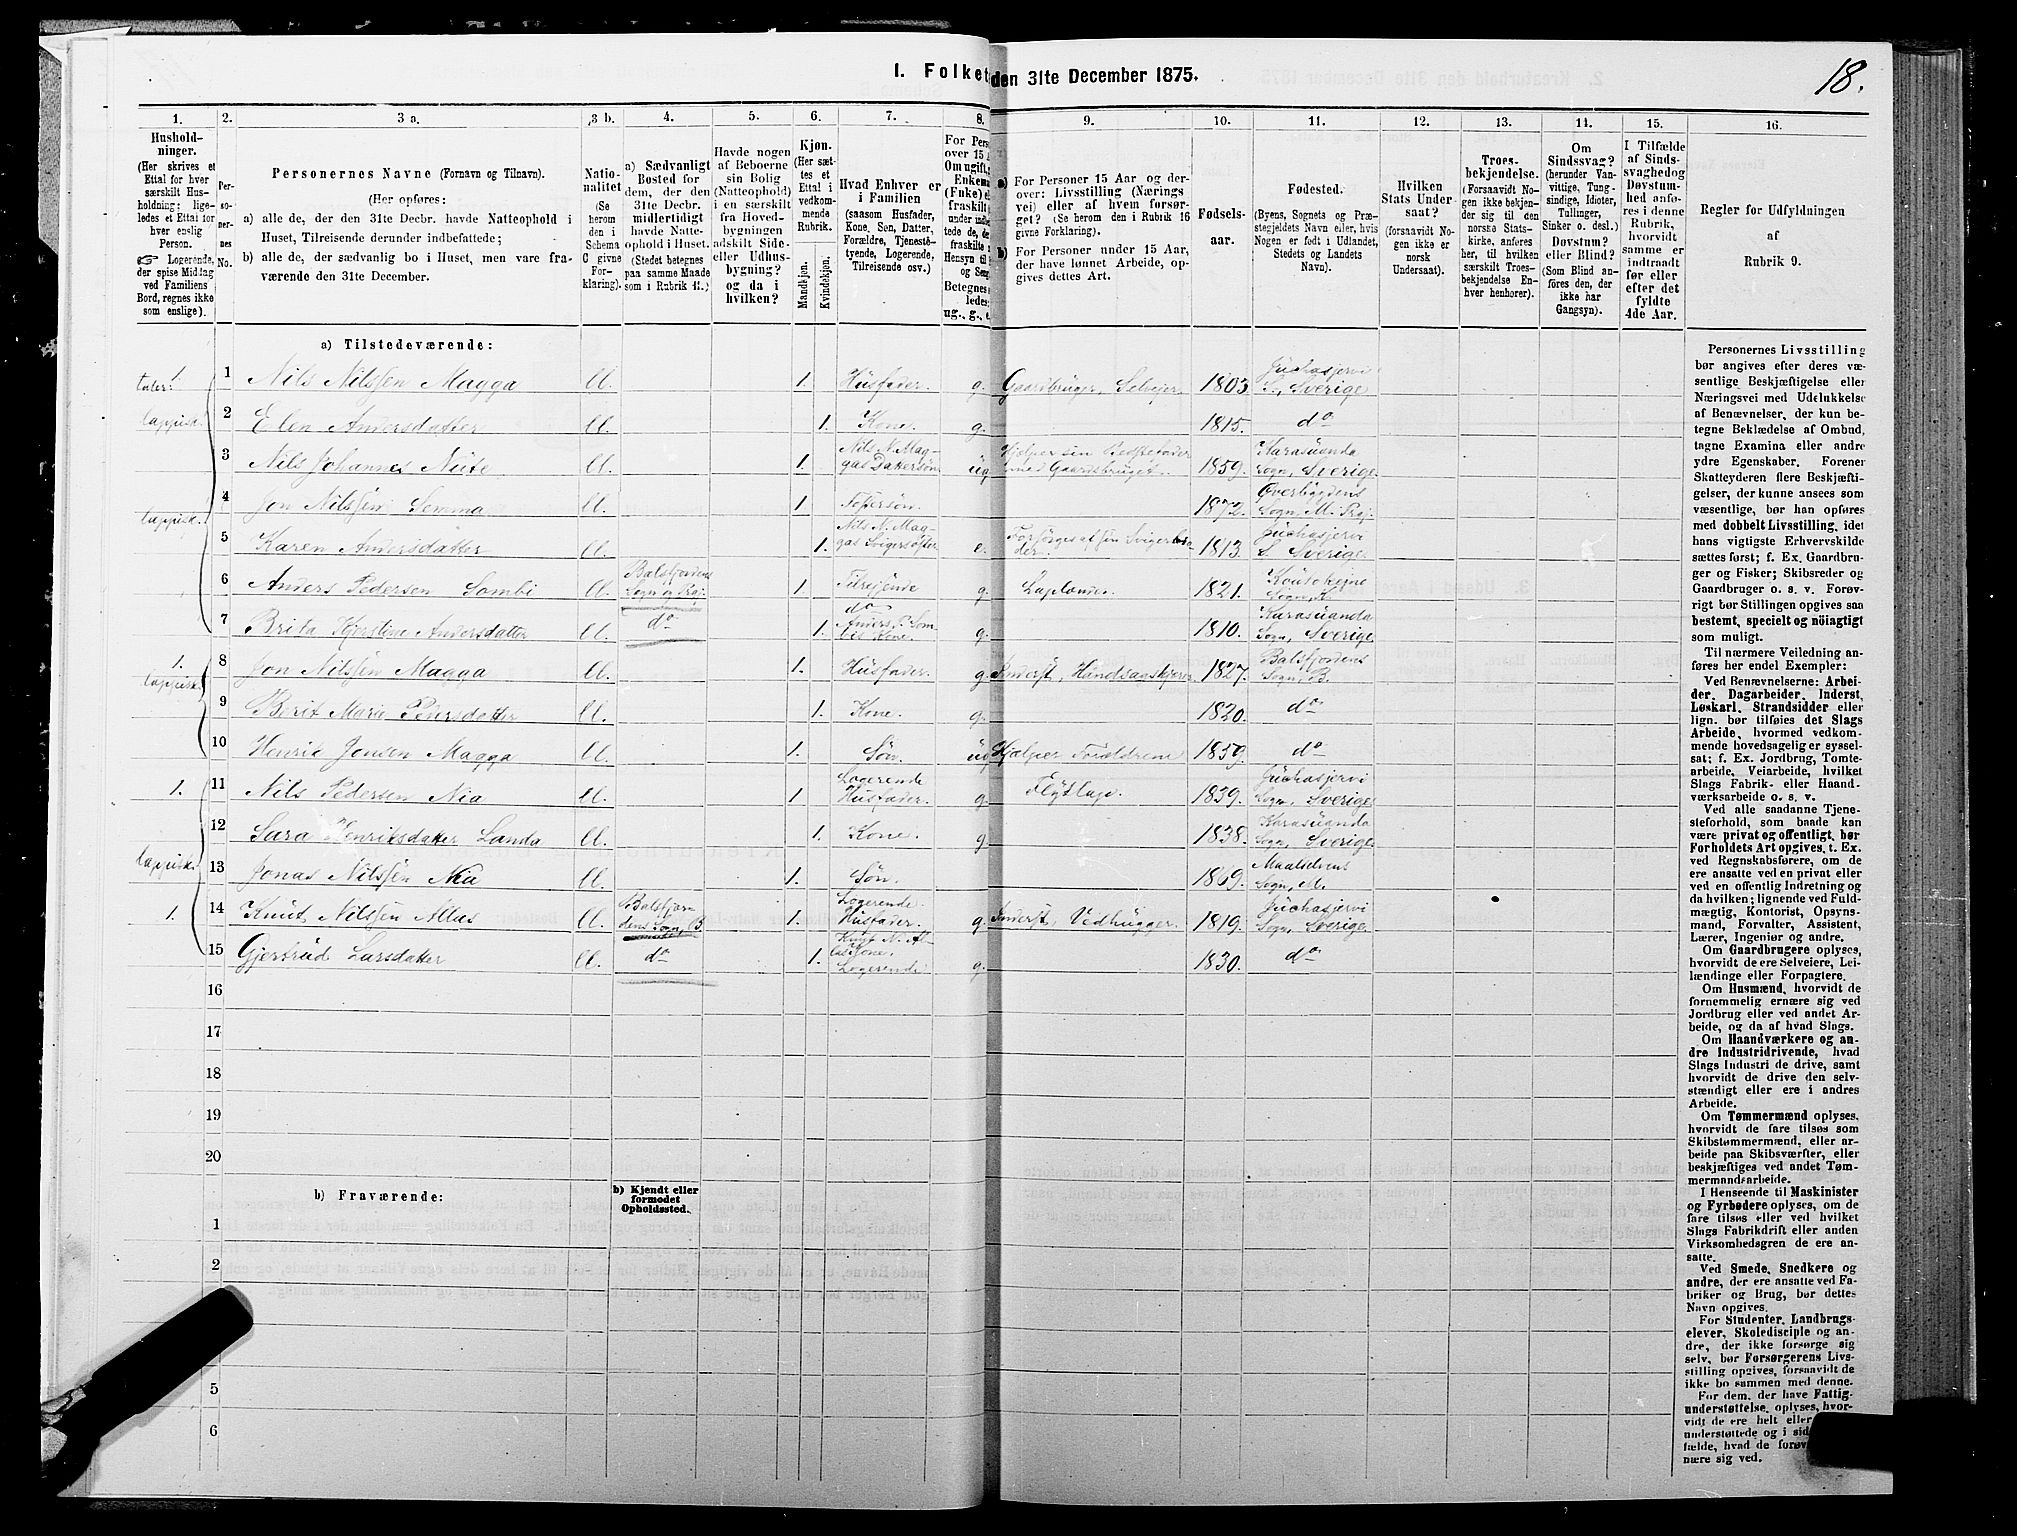 18.
I. Folket
den 31te December 1875.
1.
2.
3 a.
3 b.
4.
5.
6.
7.
8.
9.
10.
11.
12.
13.
14.
15.
16.
Hushold-
ninger.
(Her skrives et
Ettal for hver
særskilt Hus-
holdning; lige-
ledes et Ettal for
hver enslig
Person.
☞ Logerende,
der spise Middag
ved Familiens
Bord, regnes ikke
som enslige).
Per-
so-
ner-
nes
No.
Personernes Navne (Fornavn og Tilnavn).
(Her opføres:
a) alle de, der den 31te Decbr. havde Natteophold i
Huset, Tilreisende derunder indbefattede;
b) alle de, der sædvanlig bo i Huset, men vare fra-
værende den 31te December.
Natio-
nalitet
(Se
herom
den i
Schema
C givne
For-
klaring).
a) Sædvanligt
Bosted for
dem, der den
31te Decbr.
midlertidigt
havde Natte-
ophold i Huset.
(Stedet betegnes
paa samme Maade
som i Rubrik 11.)
Havde nogen
af Beboerne
sin Bolig
(Natteophold)
i en særskilt
fra Hoved-
bygningen
adskilt Side-
eller Udhus-
bygning?
og da i
hvilken?
Kjøn.
(Her sæt-
tes et
Ettal i
vedkom-
mende
Rubrik.
Mandkjøn.
Kvindekjøn.
Hvad Enhver er
i Familien
(saasom Husfader,
Kone, Søn, Datter,
Forældre, Tjeneste-
tyende, Logerende,
Tilreisende osv.)
For Pers
over 15 A
Om ugift,
Enkema
(Fuke) el
fraskilt
under indb
tede de,
fraskilte
Hensyn til
og Seng
Betegnes s
ledes:
ug., g., e.
a) For Personer 15 Aar og der-
over: Livsstilling (Nærings
vei) eller af hvem forsør-
get? (Se herom den i Rubrik 16
givne Forklaring).
b) For Personer under 15 Aar,
der have lønnet Arbeide, op-
gives dettes Art.
Fødsels-
aar.
Fødested.
(Byens, Sognets og Præ-
stegjeldets Navn eller, hvis
Nogen er født i Udlandet,
Stedets og Landets
Navn).
Hvilken
Stats Under-
saat?
(forsaavidt No-
gen ikke er
norsk
Undersaat).
Troes-
bekjendelse.
(Forsaavidt No-
gen ikke bekjen-
der sig til den
norske Stats-
kirke, anføres
her, til hvilken
særskilt Troes-
bekjendelse En-
hver henhører).
Om
Sindssvag?
(herunder Van-
vittige, Tung-
sindige, Idioter,
Tullinger,
Sinker o. desl.)
Døvstum?
eller Blind?
(Som Blind an-
føres den, der
ikke har
Gangsyn).
I Tilfælde
af Sinds-
svaghed og
Døvstum-
hed anfø-
res i denne
Rubrik,
hvorvidt
samme er
indtraadt
før eller
efter det
fyldte
4de Aar.
Regler for Udfyldningen
af
Rubrik 9.
a) Tilstedeværende:
1. 1 Nils Nilssen Magga ll. 1. Husfader. g. Gaardbruger, Selvejer. 1803. Juchasjervi S., Sverige
taler lappisk. 2 Elen Andersdatter ll. 1. Kone. g. 1815. do
3 Nils Johannes Nute ll. 1. Nils N. Mag- gas Dattersøn ug Hjelper sin Bedstefader med Gaardsbruget. 1859. Karasuanda Sogn, Sverige.
4 Jon Nilssen Somma ll. 1. 1872. Øverbygdens Sogn, M. Præj.
lappisk. 5 Karen Andersdatter ll. 1. Nils N. Mag- gas Svigersøster e. Forsørges af sin Svigerbro- der. 1813. Juchasjervi S. Sverige.
6 Anders Pedersen Sombi ll. Balsfjordens Sogn og Præj. 1. Tilrejsende g. 1821. Koutokejne Sogn, K.
7 Brita Kjerstine Andersdatter ll. do 1. do Anders P. Som- bis Kone. g. 1810. Karasuanda Sogn, Sverige.
1. lappisk. 8 Jon Nilssen Magga ll. 1. Husfader. g. Inderst, 1827. Balsfjordens Sogn, B.
9 Berit Marie Pedersdatter ll. 1. Kone. g. 1820. do
10 Henrik Jonsen Magga ll. 1. Søn. ug Hjælper Forældrene 1859. do
1. 11 Nils Pedersen Nia ll. 1. Logerende Husfader. g. Flytlap. 1839. Juchasjervi Sogn, Sverige
12 Sara Henriksdatter Landa ll. 1. Kone. g. 1838. Karasuanda Sogn, Sverige.
lappisk. 13 Jonas Nilssen Nia ll. 1. Søn. 1869. Maalselvens Sogn, M.
1. 14 Knut Nilssen Allas ll. Balsfjor- dens Sogn, B. 1. Logerende. Husfader. g. Inderst, Vedhugger. 1819. Juchasjervi Sogn, Sverige.
15 Gjertrud Larsdatter ll. do 1. Knut N. Al- las Kone. Logerende. g. 1830. do
16
17
18
19
20
b) Fraværende:
b) Kjendt eller
formodet
Opholdssted.
1
2
5
6
Personernes Livsstilling
bør angives efter deres væ-
sentlige Beskjæftigelse eller
Næringsvei med Udelukkelse
af Benævnelser, der kun be-
tegne Beklædelse af Ombud,
tagne Examina eller andre
ydre Egenskaber. Forener
Skatteyderen flere Beskjæfti-
gelser, der kunne ansees som
væsentlige, bør han opføres
med dobbelt Livsstilling, idet
hans vigtigste Erhvervskilde
sættes først; f. Ex. Gaardbru-
ger og Fisker; Skibsreder og
Gaardbruger o. s. v. Forøv-
rigt bør Stillingen opgives saa
bestemt, specielt og nøiagtigt
som muligt.
Til nærmere Veiledning an-
føres her endel Exempler:
Ved Benævnelserne: Arbei-
der, Dagarbeider, Inderst,
Løskarl, Strandsidder eller
lign. bør tilføies det Slags
Arbeide, hvormed vedkom-
mende hovedsagelig er syssel-
sat; f. Ex. Jordbrug, Tomte-
arbeide, Veiarbeide, hvilket
Slags Fabrik- eller Haand-
værksarbeide o. s. v.
Ved alle saadanne Tjene-
steforhold, som baade kan
være privat og offentligt, bør
Forholdets Art opgives, t. Ex.
ved Regnskabsførere, om de
ere ansatte ved en privat eller
ved en offentlig Indretning og
da hvilken; lignende ved Fuld-
mægtig, Kontorist, Opsyns-
mand, Forvalter, Assistent,
Lærer, Ingeniør og andre.
Om Gaardbrugere oplyses,
hvorvidt de ere Selveiere, Lei-
lændinge eller Forpagtere.
Om Husmænd, hvorvidt de
fornemmelig ernære sig ved
Jordbrug eller ved andet Ar-
beide, og da af hvad Slags.
Om Haandværkere og an-
dre Industridrivende, hvad
Slags Industri de drive, samt
hvorvidt de drive den selv-
stændigt eller ere i andres
Arbeide.
Om Tømmermænd oplyses,
hvorvidt de fare tilsøs som
Skibstømmermænd, eller ar-
beide paa Skibsværfter, eller
beskjæftiges ved andet Tøm-
mermandsarbeide.
I Henseende til Maskinister
og Fyrbødere oplyses, om de
fare tilsøs eller ved hvilket
Slags Fabrikdrift eller anden
Virksomhedsgren de ere an-
satte.
Ved Smede, Snedkere og
andre, der ere ansatte ved Fa-
briker og Brug, bør dettes
Navn opgives.
For Studenter, Landbrugs-
elever, Skoledisciple og an-
dre, der ikke forsørge sig
selv, bør Forsørgerens Livs-
stilling opgives, forsaavidt de
ikke bo sammen med denne.
For dem, der have Fattig-
understøttelse, oplyses, hvor-
vidt de ere helt eller
understøttede og i sid
fælde, hvad de forøv
nære sig ved.